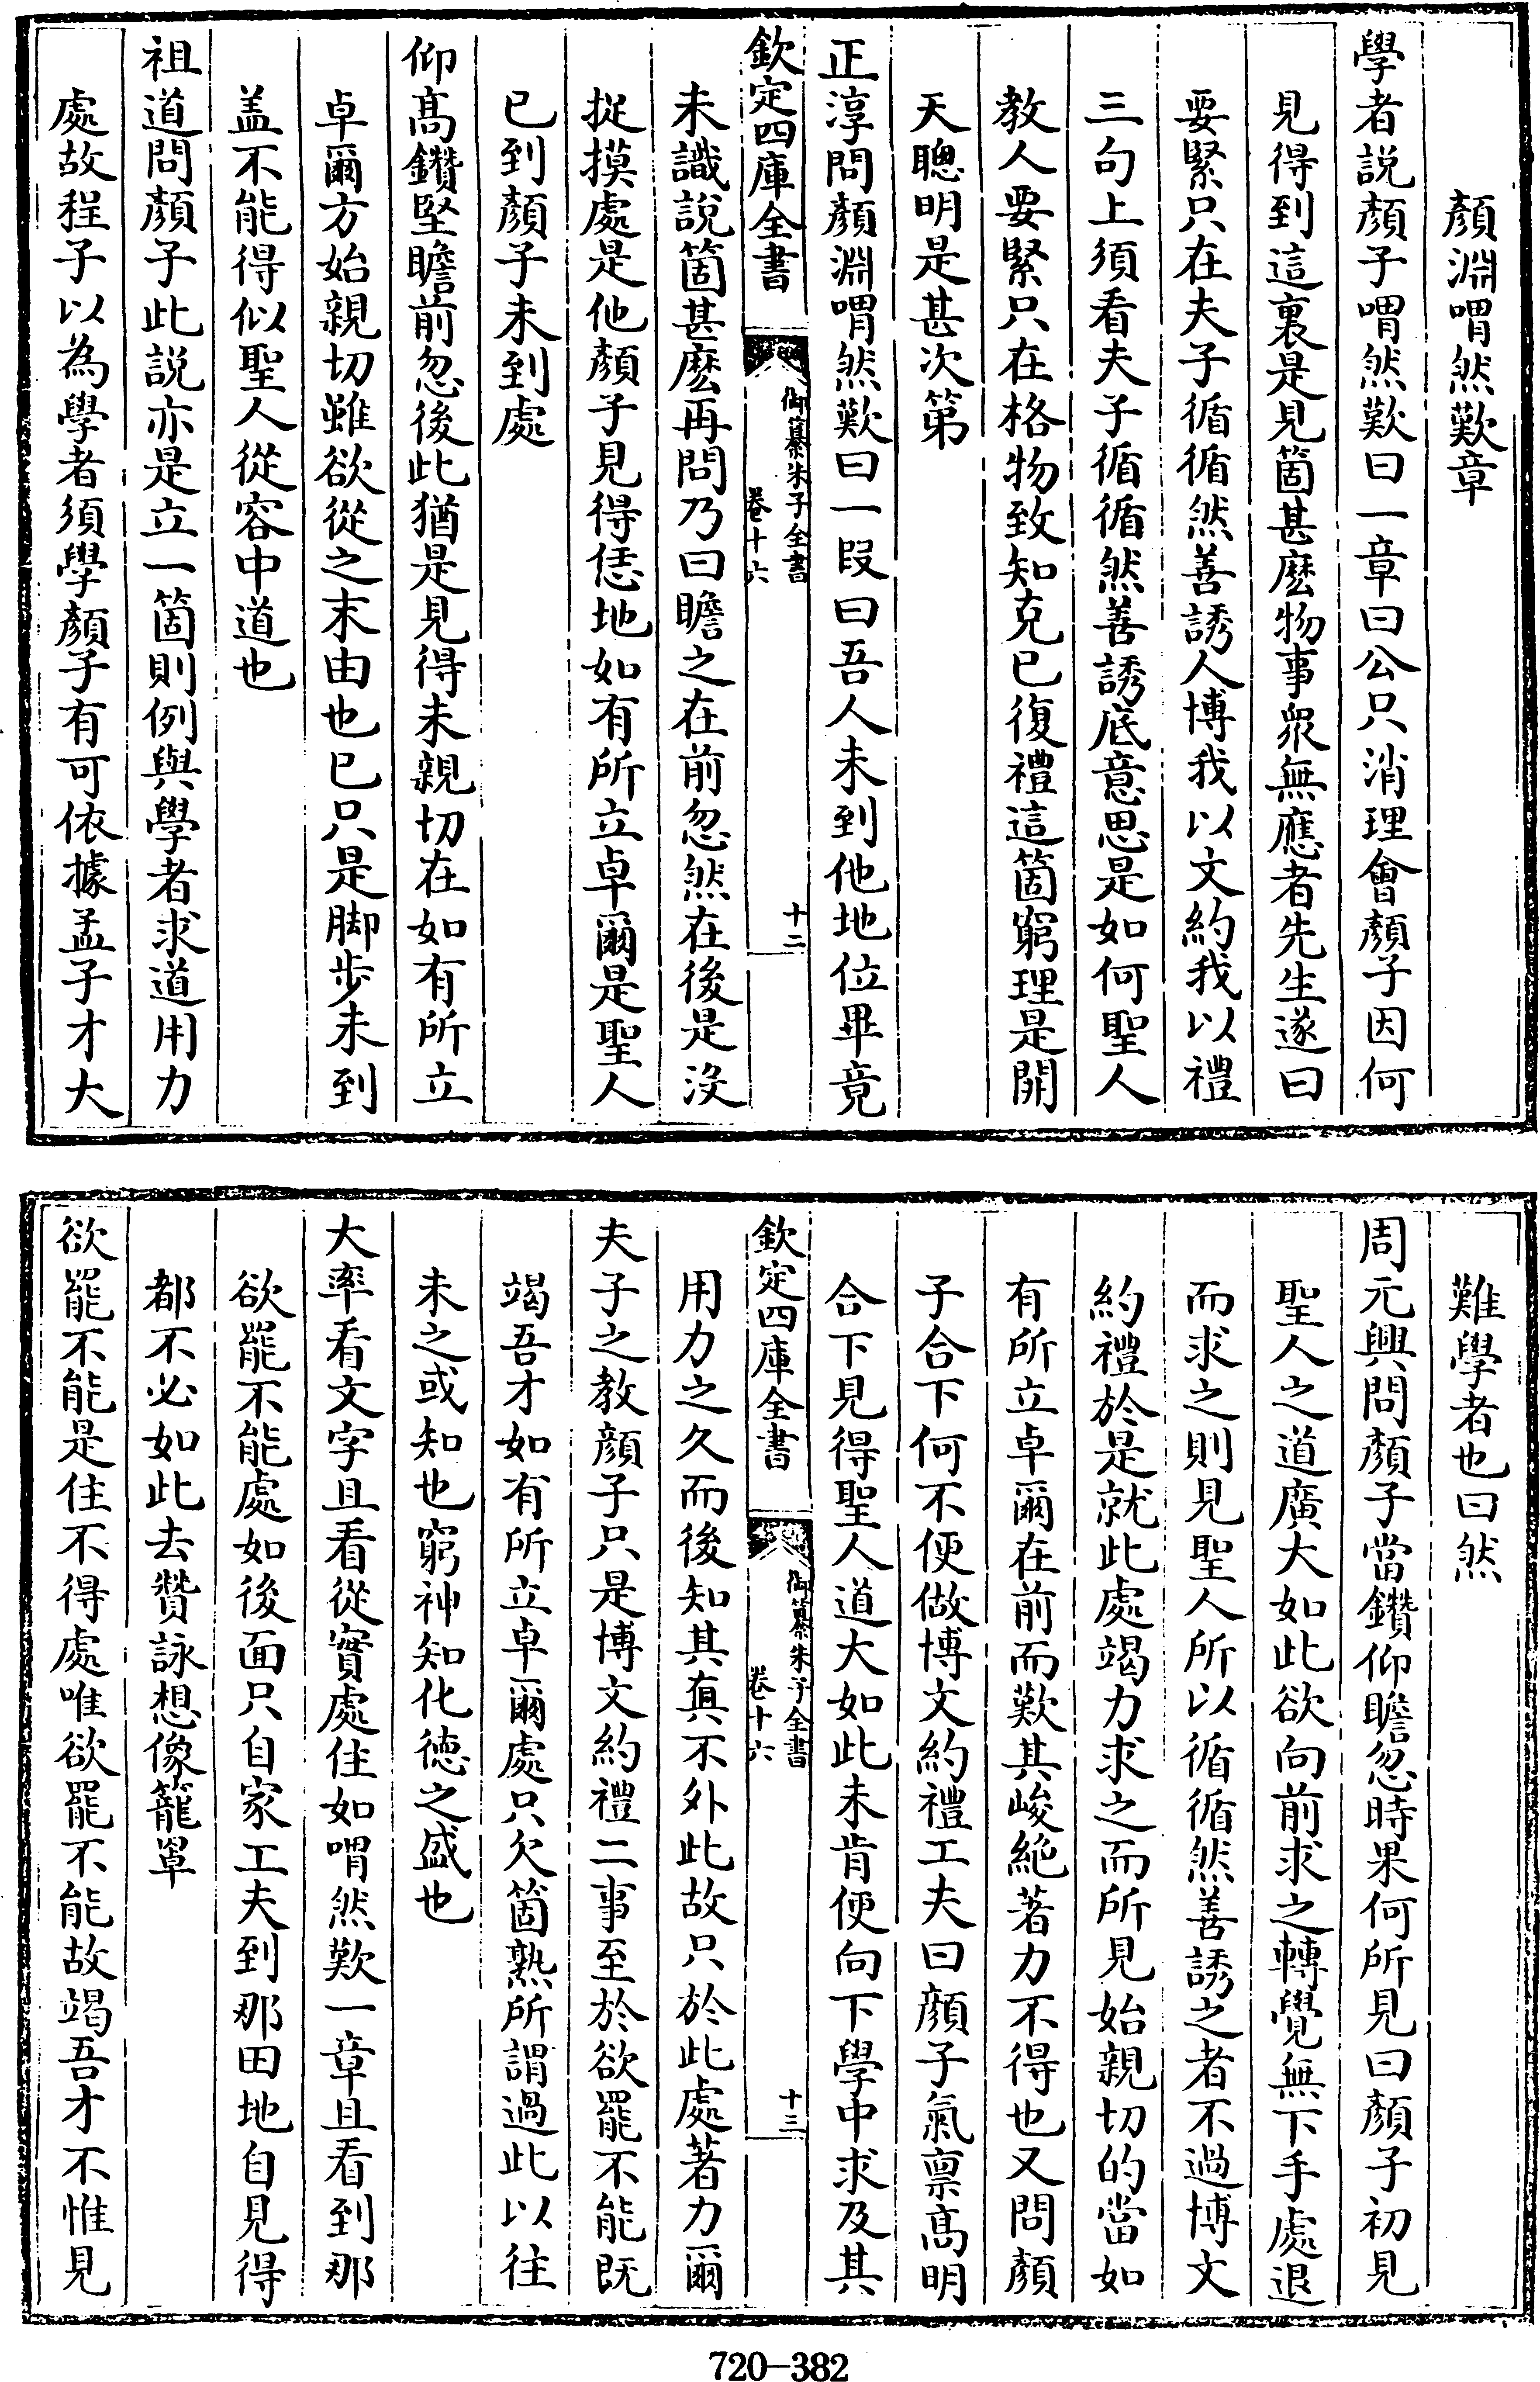 顏淵喟然歎章
學者説顏子喟然歎曰一章曰公只消理會顏子因何
見得到這裏是見箇甚麽物事衆無應者先生遂曰
要緊只在夫子循循然善誘人博我以文約我以禮
三句上須看夫子循循然善誘底意思是如何聖人
教人要緊只在格物致知克已復禮這箇窮理是開
天聰明是甚次第
正淳問顏淵喟然歎曰一段曰吾人未到他地位畢竟
欽定四庫全書
御纂朱子全書
卷十六
十二
未識說箇甚麽再問乃曰瞻之在前忽然在後是沒
捉摸處是他顏子見得恁地如有所立卓爾是聖人
已到顏子未到處
仰髙鑽堅瞻前忽後此猶是見得未親切在如有所立
卓爾方始親切雖欲從之末由也已只是脚步未到
盖不能得似聖人從容中道也
祖道問顏子此説亦是立一箇則例與學者求道用力
處故程子以為學者須學顏子有可依據孟子才大
難學者也曰然
周元興問顏子當鑽仰瞻忽時果何所見曰顏子初見
聖人之道廣大如此欲向前求之轉覺無下手處退
而求之則見聖人所以循循然善誘之者不過博文
約禮於是就此處竭力求之而所見始親切的當如
有所立卓爾在前而歎其峻絶著力不得也又問顏
子合下何不便做博文約禮工夫曰顔子氣禀髙明
合下見得聖人道大如此未肯便向下學中求及其
欽定四庫全書
御纂朱子全書
卷十六
十三
用力之久而後知其真不外此故只於此處著力爾
夫子之教顔子只是博文約禮二事至於欲罷不能既
竭吾才如有所立卓爾處只欠箇熟所謂過此以往
未之或知也窮神知化德之盛也
大率看文字且看從實處住如喟然歎一章且看到那
欲罷不能處如後面只自家工夫到那田地自見得
都不必如此去贊詠想像籠罩
欲罷不能是住不得處唯欲罷不能故竭吾才不惟見
720-382